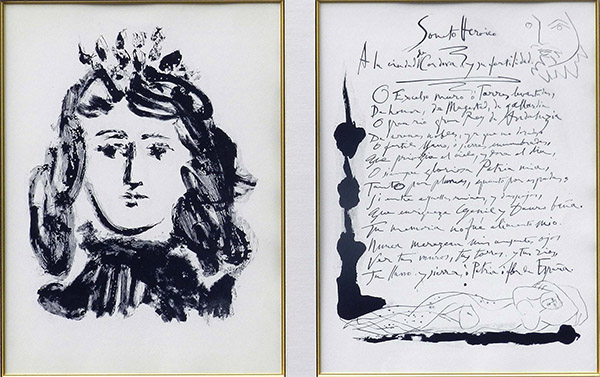 Soneto Heroico
A la ciudad de Cordova y su fertilidad.
O Excelso muro ô Torres levantadas,
De honor, de Magestad, de gallardia
O gran rio gran Rey de Andaluzia
De arenas nobles, ya que no doradas
O fertil llano, ô sierras encumbradas
Que privilegia el cielo, y dora el dia,
O siempre gloriosa Patria mia,
Tanto por plumas, quanto por espadas,
Si entre aquellas ruinas, y despojos
Que enriqueze Genil y Dauro baña.
Tu memoria no fue alimento mio.
Nunca merezcan mis ausentes ojos
Ver tus muros, tus torres, y tu rio,
Tu llano y sierra, ô Patria ô flor de España.